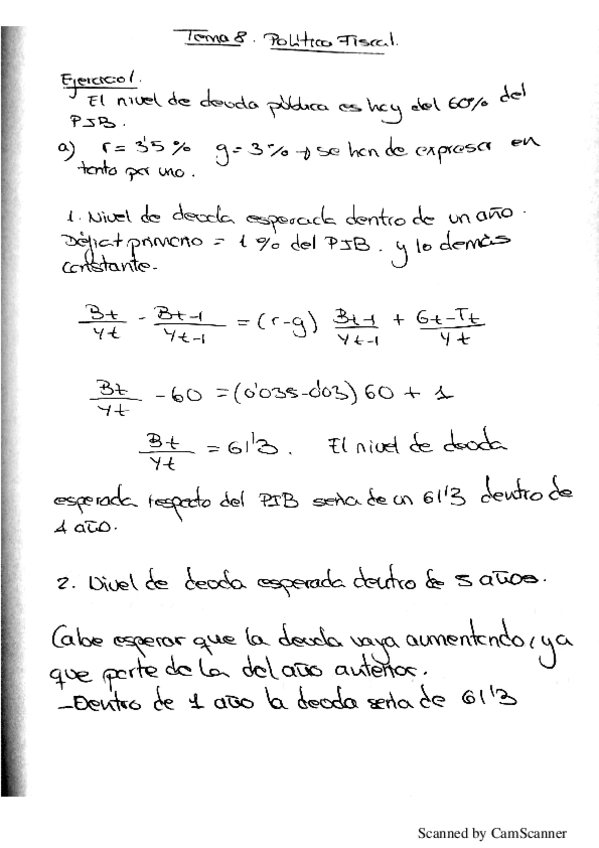 Tema 8. Política Fiscal.
Ejercicio 1.
El nivel de deuda pública es hoy del 60% del
PIB.
a) r = 3'5% g = 3% → se han de expresar en
tanto por uno.
1. Nivel de deuda esperada dentro de un año.
Déficit primario = 1% del PIB. y lo demás
constante.
Bt/Yt - Bt-1/Yt-1 = (r-g) Bt-1/Yt-1 + Gt-Tt/Yt
Bt/Yt - 60 = (0'035-0'03) 60 + 1
Bt/Yt = 61'3. El nivel de deuda
esperada respecto del PIB sería de un 61'3 dentro de
1 año.
2. Nivel de deuda esperada dentro de 5 años.
Cabe esperar que la deuda vaya aumentando, ya
que parte de la del año anterior.
-Dentro de 1 año la deuda sería de 61'3
Scanned by CamScanner